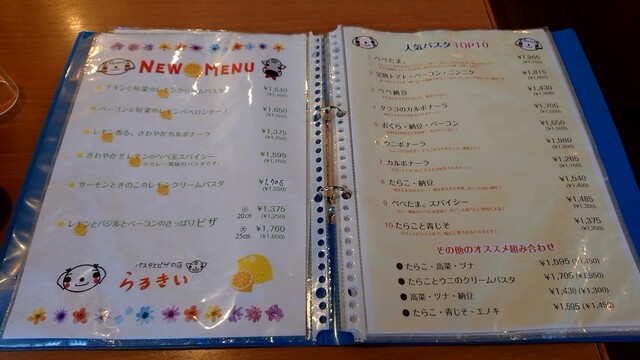 NEW MENU
チキンと旬菜のレモンクリームパスタ ¥1,540
(¥1,400)
ベーコンと旬菜のレモンペペロンチーノ ¥1,650
(¥1,500)
レモン香る、さわやかカルボナーラ ¥1,375
(¥1,250)
さわやか!!レモンのペペ玉スパイシー ¥1,595
※カレー風味のパスタです。
レモン サーモンときのこのレモンクリームパスタ ¥1,705
(¥1,550)
レモンとバジルとベーコンのさっぱりピザ
小 20cm ¥1,375
(¥1,250)
大 25cm ¥1,760
(¥1,600)
パスタとピザの店
らるきぃ
人気パスタTOP10
1 ぺぺたま。 ¥1,265
2 完熟トマト・ベーコン・ニンニク ¥1,815
3 ペペ納豆 ¥1,430
(¥1,300)
4 タラコのカルボナーラ ¥1,705
5 おくら・納豆・ベーコン ¥1,650
(¥1,500)
6 ウニボナーラ ¥1,980
(¥1,800)
7 カルボナーラ ¥1,265
8 たらこ・納豆 ¥1,540
(¥1,400)
9 ぺぺたま。スパイシー ¥1,485
(¥1,350)
10 たらこと青じそ ¥1,375
(¥1,250)
その他のオススメ組み合わせ
● たらこ・高菜・ツナ ¥1,595 (¥1,450)
● たらことウニのクリームパスタ ¥1,705 (¥1,550)
● 高菜・ツナ・納豆 ¥1,430 (¥1,300)
● たらこ・青じそ・エノキ ¥1,595 (¥1,450)